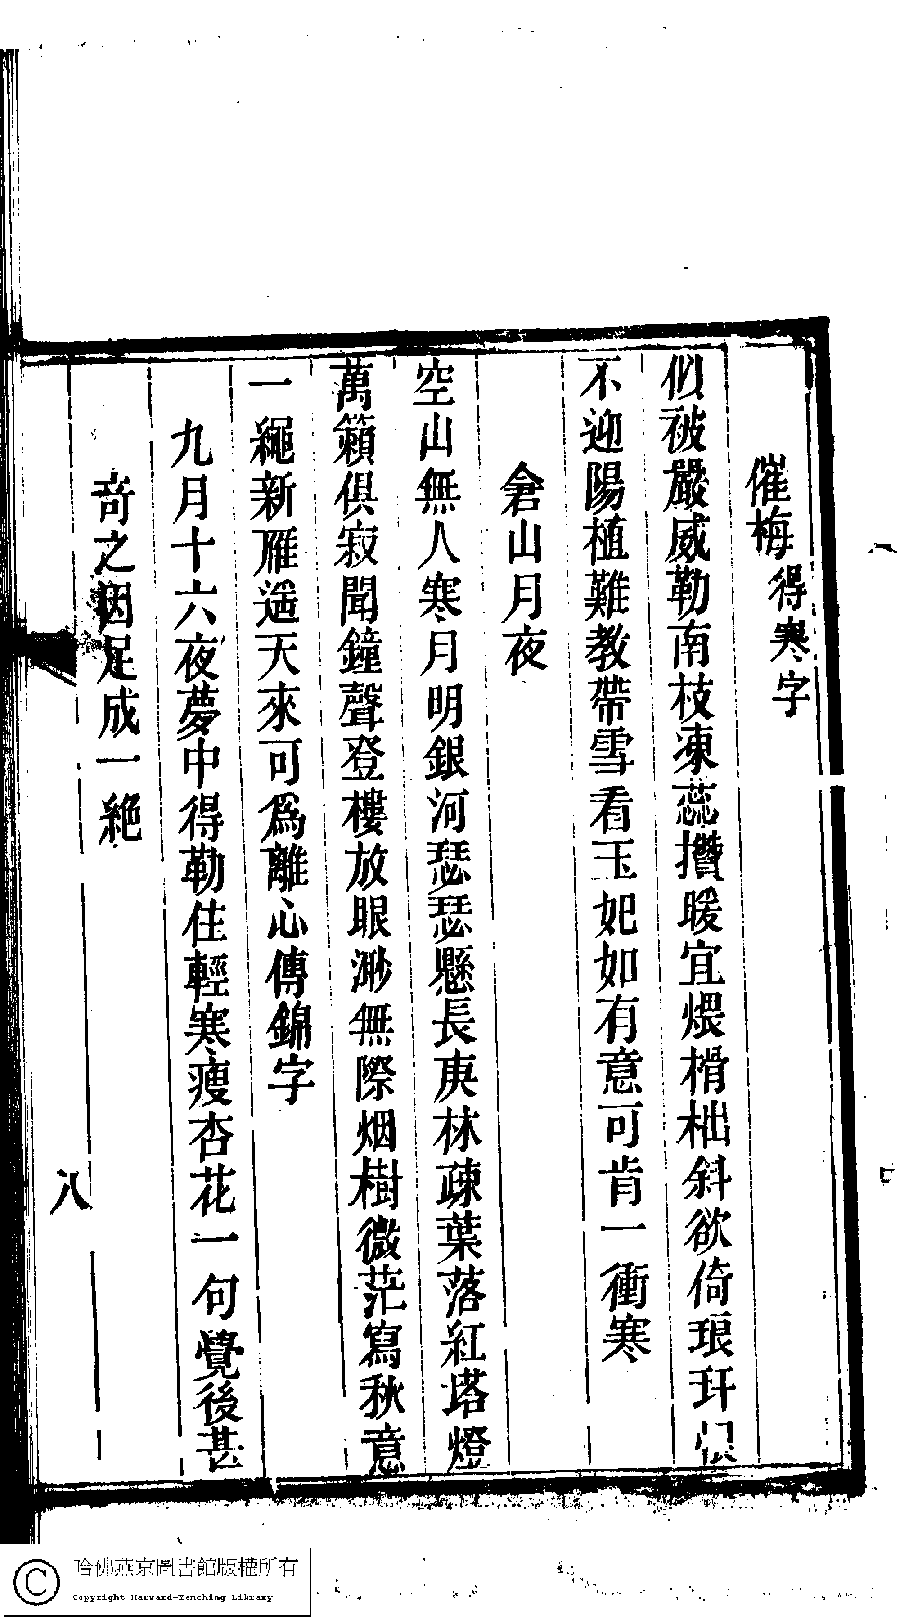 催梅得寒字
似被嚴威勒南枝凍蕊攢暖宜煨榾柮斜欲倚琅玕
不迎陽植難教帶雪看玉妃如有意可肯一衝寒
倉山月夜
空山無人寒月明銀河瑟瑟懸長庚林疎葉落紅塔燈
萬籟俱寂聞鐘聲登樓放眼渺無際烟樹微茫寫秋意
一繩新雁遥天來可爲離心傳錦字
九月十六夜夢中得勒住輕寒瘦杏花一句覺後甚
奇之因足成一絶
八
哈佛燕京圖書館版權所有
Copyright Harvard-Yenching Library